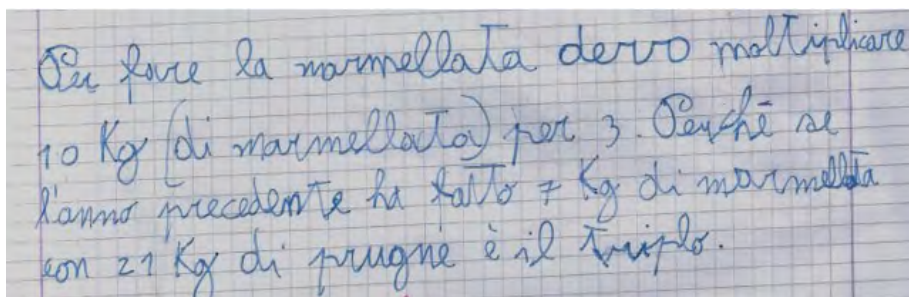 Per fare la marmellata devo moltiplicare
10 Kg (di marmellata) per 3. Perchè se
l'anno precedente ha fatto 7 Kg di marmellata
con 21 Kg di prugne è il triplo.